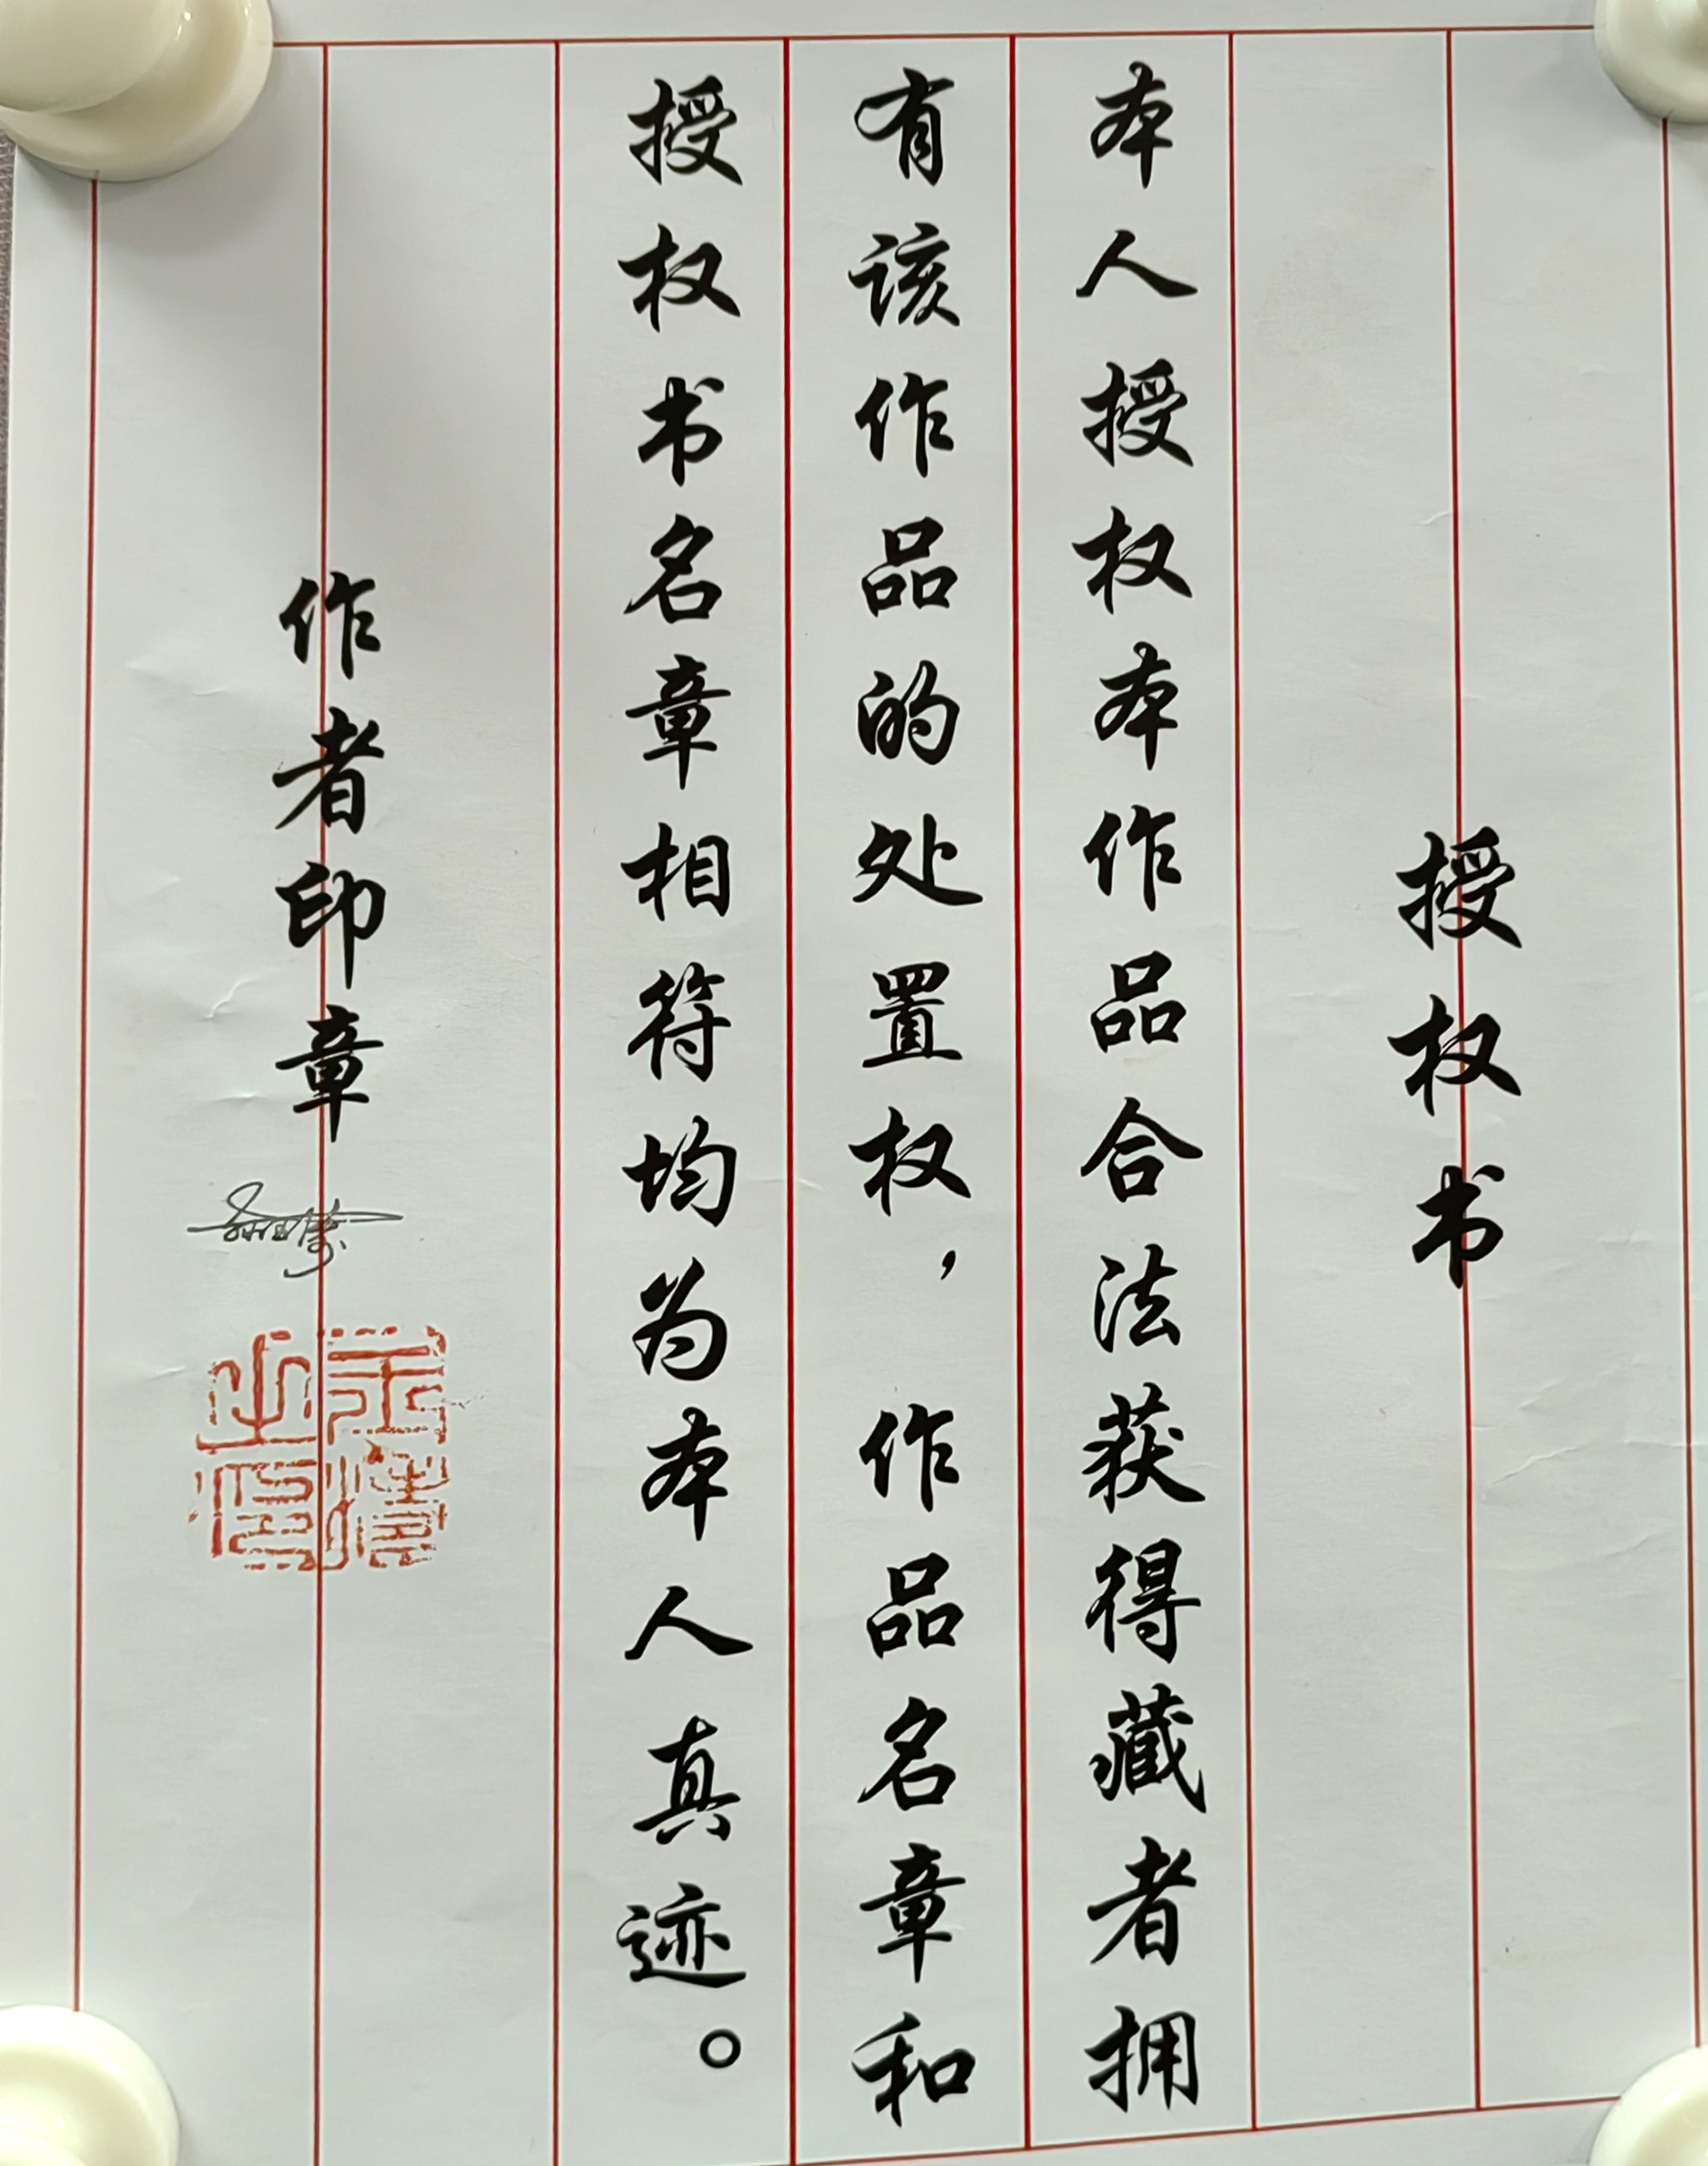 授权书
本人授权本作品合法获得藏者拥
有该作品的处置权，作品名章和
授权书名章相符均为本人真迹。
作者印章